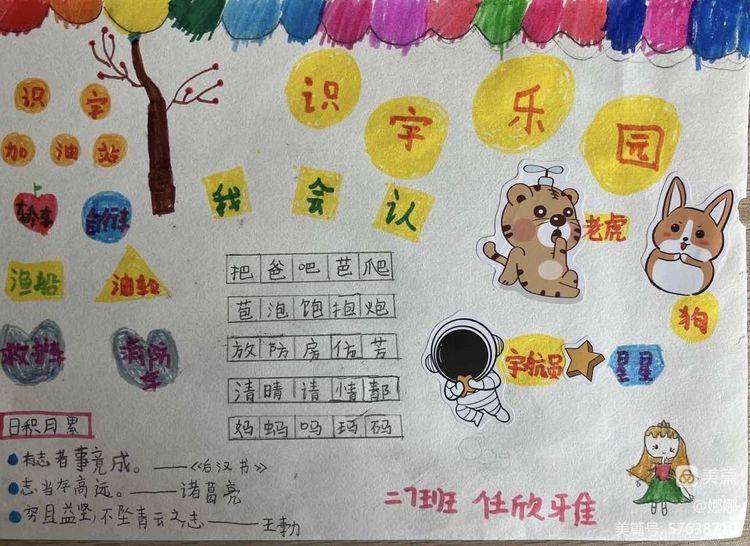 识字乐园
识字
加油站
我会认
轿车
自行车
渔船
油轮
救护车
消防车
老虎
狗
宇航员
星星
把爸吧芭爬
苞泡饱抱炮
放防房仿芳
清晴请情都
妈蚂吗玛码
日积月累
有志者事竟成。——《后汉书》
志当存高远。——诸葛亮
穷且益坚,不坠青云之志——王勃
二7班 任欣雅
美篇
@娜娜